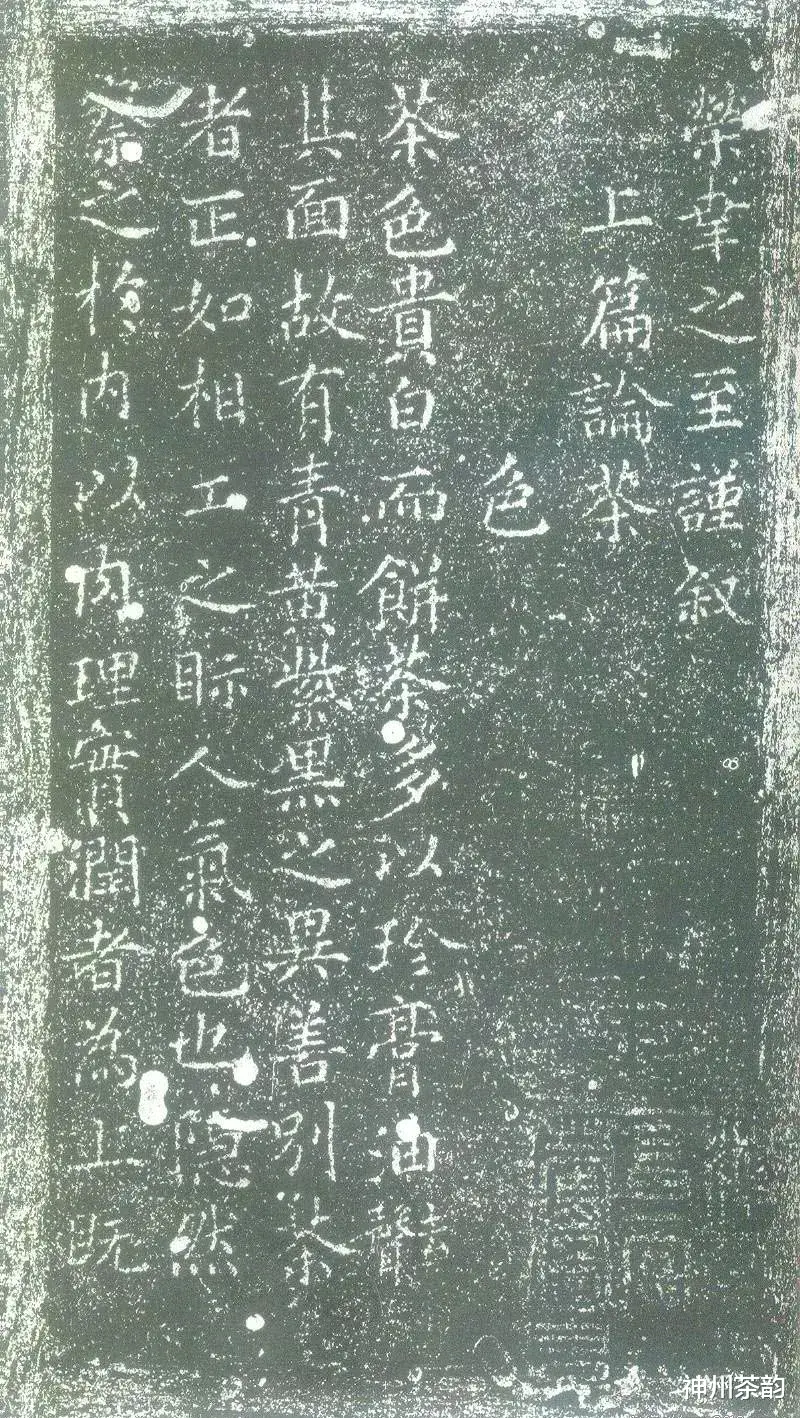 榮幸之至謹叙
上篇論茶
色
茶色貴白而餅茶多以珍膏油
其面故有青黄紫黑之異善别茶
者正如相工之眎人氣色也隱然
察之於内以肉理實潤者為上既
神州茶韵